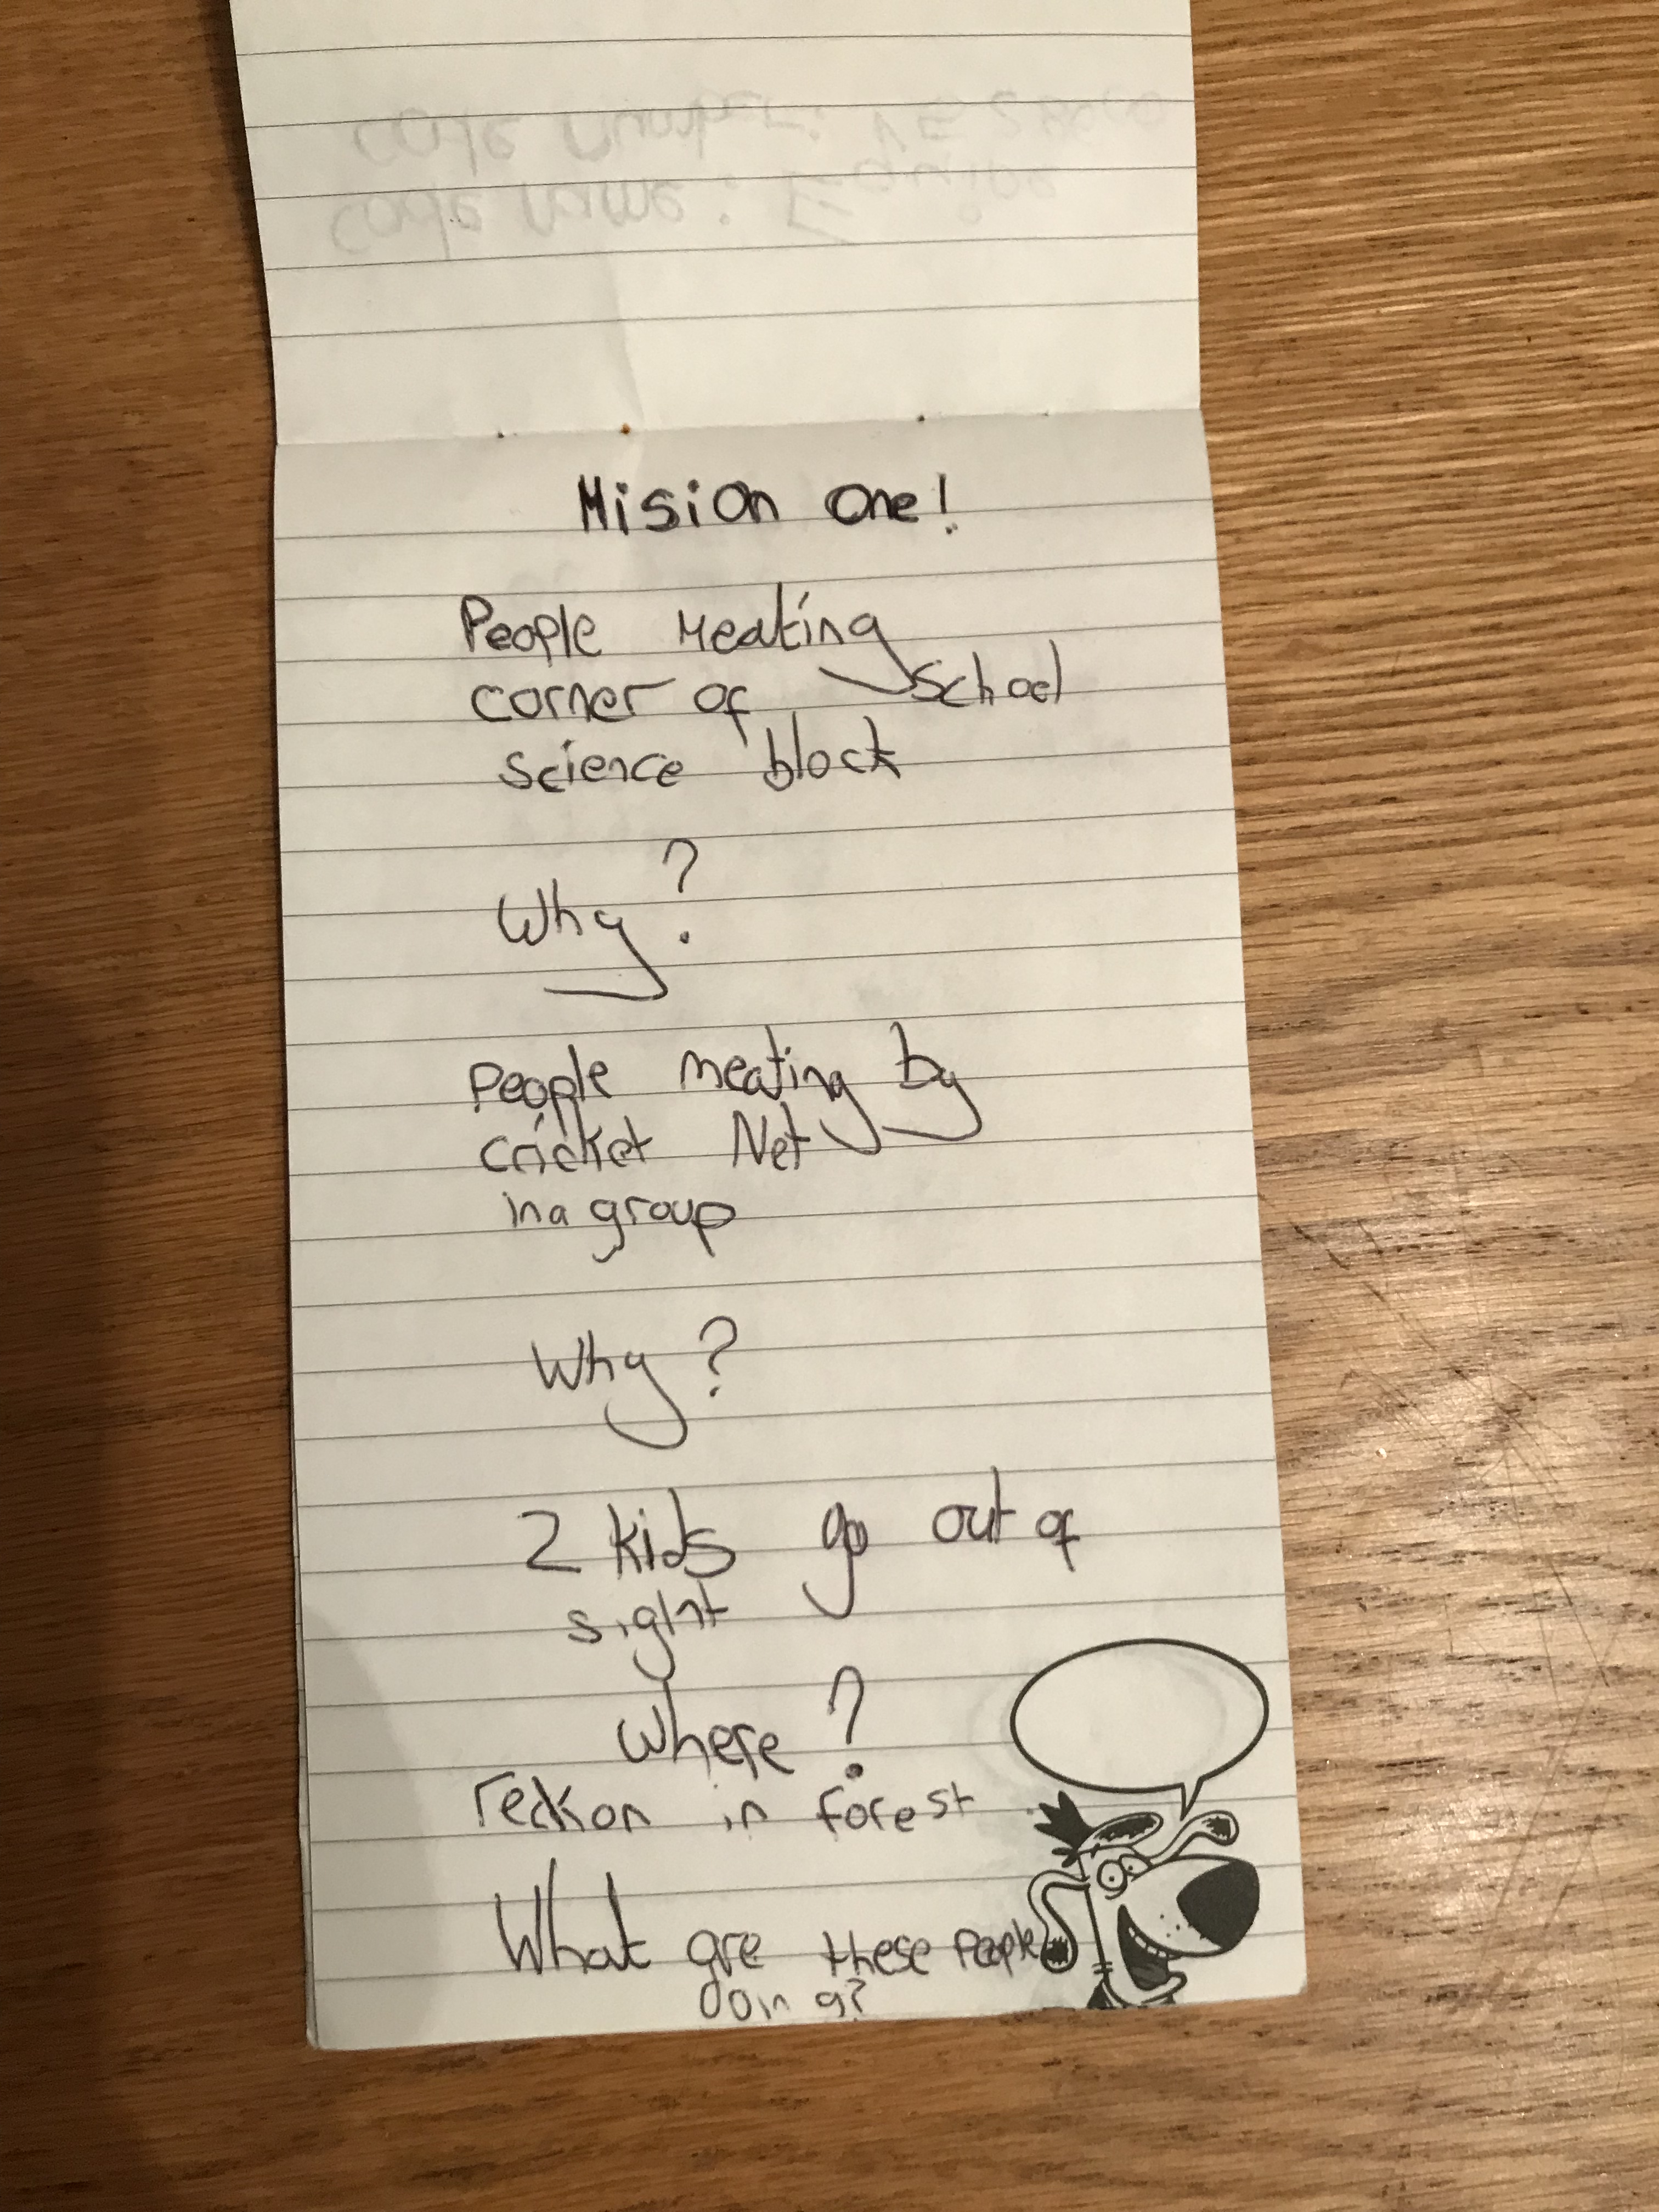 Mision One!
People Meating
corner of School
science block
Why?
People meating by
cricket Net
in a group
Why?
2 kids go out of
sight
Where?
reckon in forest
What are these People
doing?